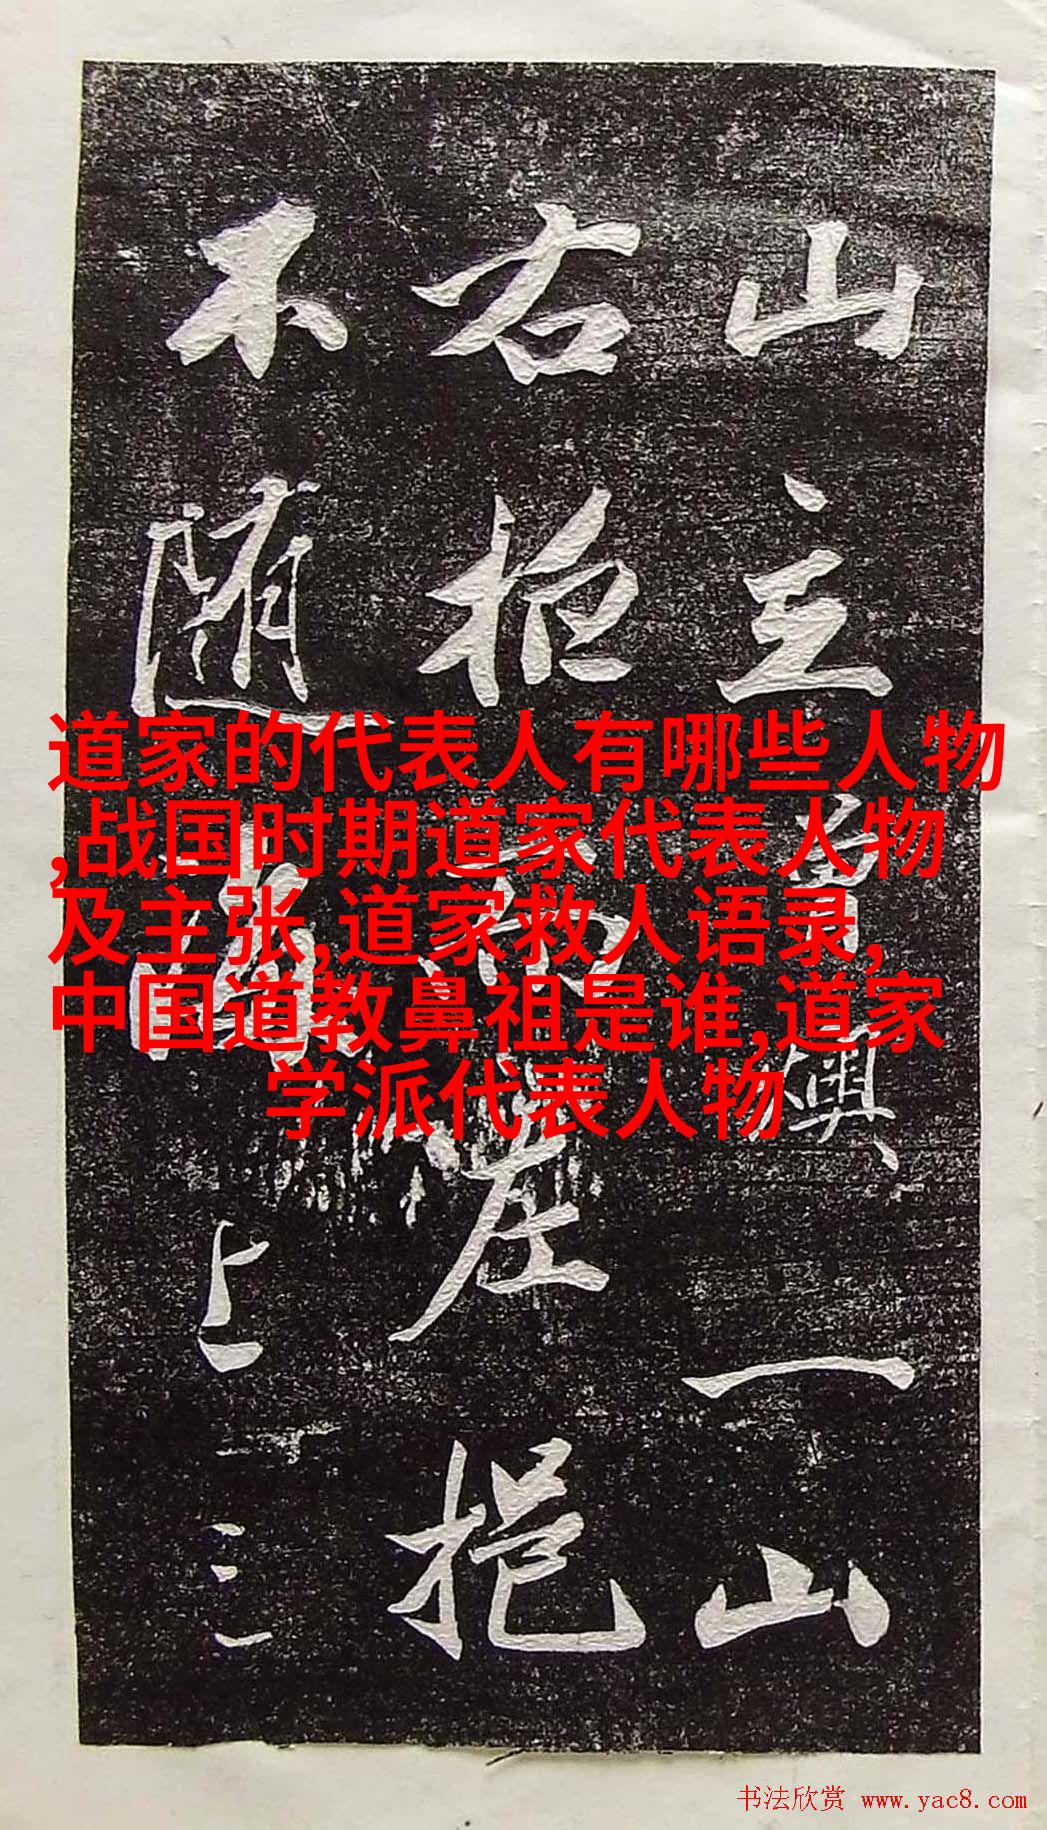 山主與、一山
右左挹
不随上三
道家的代表人有哪些人物
,战国时期道家代表人物
及主张,道家救人语录,
中国道教鼻祖是谁,道家
学派代表人物
书法欣赏 www.yac8.com